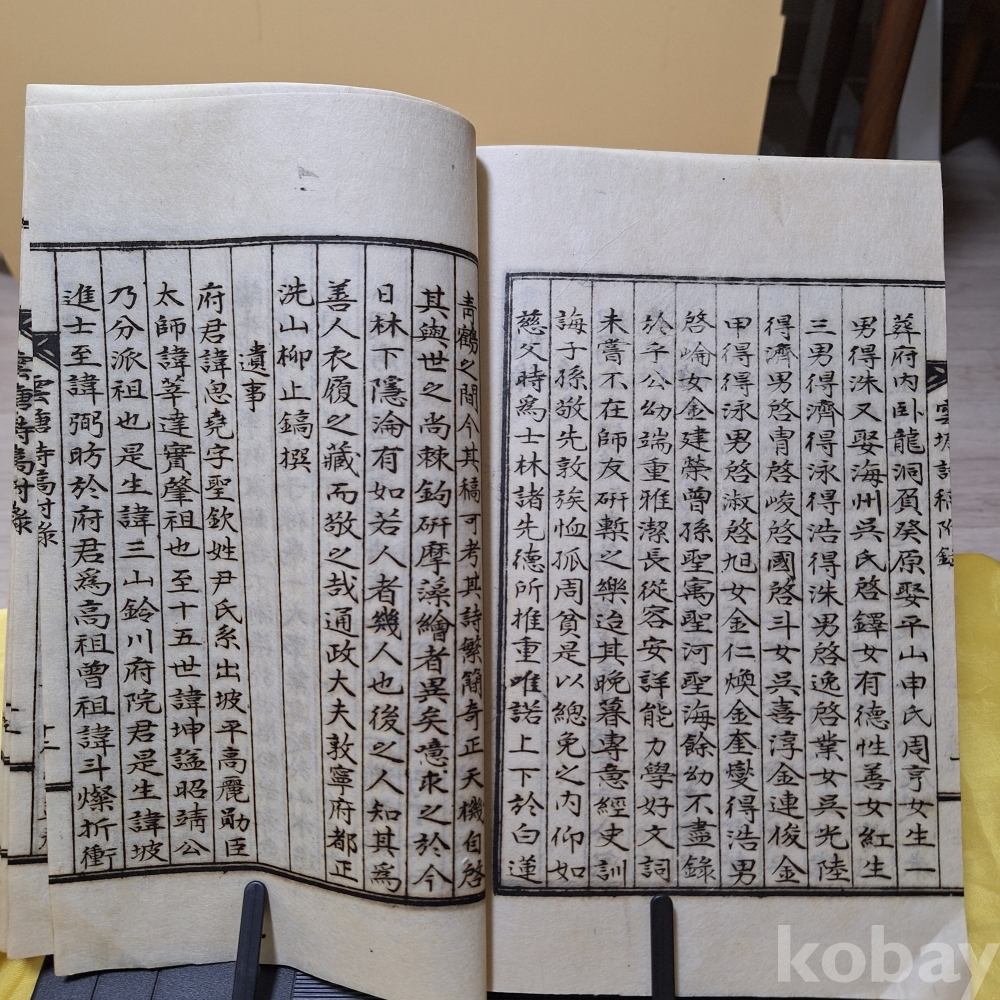 葬府内卧龍洞負癸原娶平山申氏周亨女生一
男得洙又娶海州吳氏啓鐸女有德性善女紅生
三男得濟得泳得浩得洙男啓逸啓業女吳光陸
得濟男啓胄啓峻啓國啓斗女吳喜淳金連俊金
甲得得泳男啓淑啓旭女金仁煥金奎燮得浩男
啓崘女金建榮曾孫聖寓聖河聖海餘幼不盡錄
於乎公幼端重雅潔長從容安詳能力學好文詞
未嘗不在師友硏塹之樂迨其晩暮專意經史訓
誨子孫敬先敦族恤孤周貧是以總免之内仰如
慈父時爲士林諸先德所推重唯諾上下於白蓮
靑鶴之間今其稿可考其詩繁簡奇正天機自啓
其與世之尚棘鉤硏摩藻繪者異矣噫求之於今
日林下隱淪有如若人者幾人也後之人知其爲
善人衣履之藏而敬之哉通政大夫敦寧府都正
洗山柳止鎬撰
遺事
府君諱思堯字聖欽姓尹氏系出坡平高麗勛臣
太師諱莘達實肇祖也至十五世諱坤諡昭靖公
乃分派祖也是生諱三山鈴川府院君是生諱坡
進士至諱弼昉於府君爲高祖曾祖諱斗燦折衝
雲塘詩稿附錄
kobay